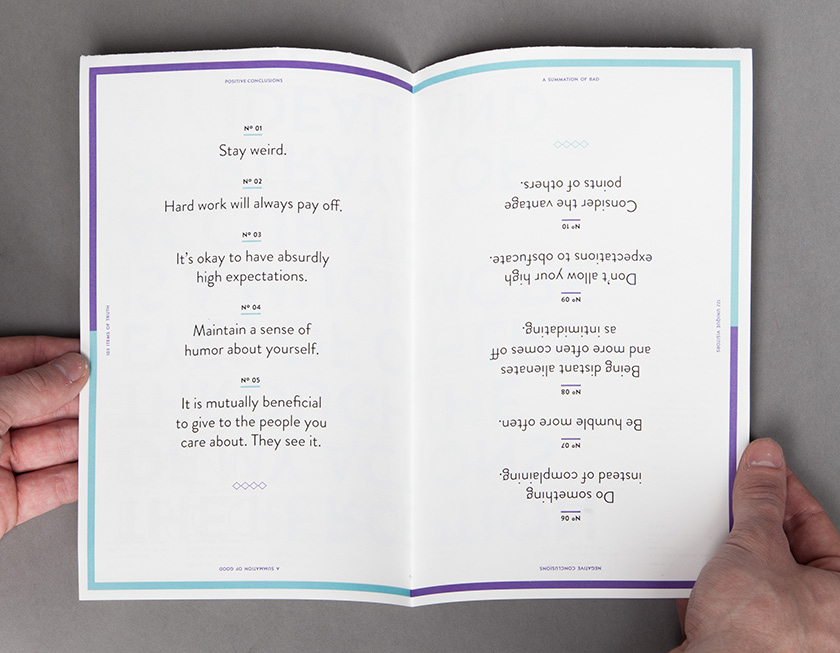 POSITIVE CONCLUSIONS
Nº 01
Stay weird.
Nº 02
Hard work will always pay off.
Nº 03
It's okay to have absurdly
high expectations.
Nº 04
Maintain a sense of
humor about yourself.
Nº 05
It is mutually beneficial
to give to the people you
care about. They see it.
A SUMMATION OF GOOD
ITEMS OF TRUTH
A SUMMATION OF BAD
NEGATIVE CONCLUSIONS
Nº 06
Do something
instead of complaining.
Nº 07
Be humble more often.
Nº 08
Being distant alienates
and more often comes off
as intimidating.
Nº 09
Don't allow your high
expectations to obsfucate.
Nº 10
Consider the vantage
points of others.
UNIQUE VISITORS